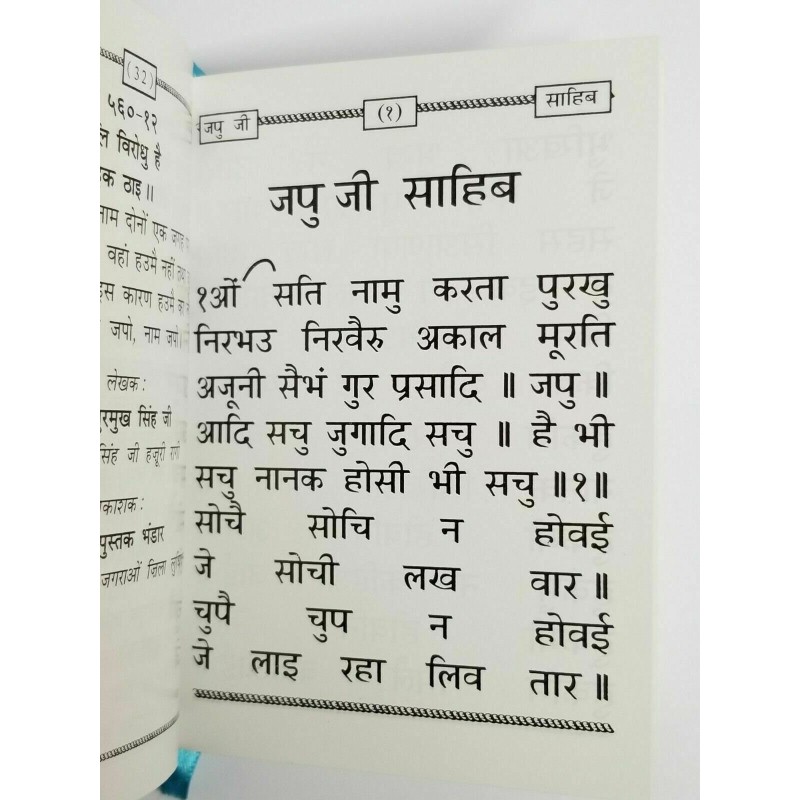 (32)
५६०-१२
विरोधु है
ठाइ ॥
नाम दोनों एक जगह
वहां हउमै नहीं
इस कारण हउमै का
जपो, नाम जपो।
लेखक :
सिंह जी
सिंह जी हजूरी रागी
पुस्तक भंडार
जगराओं ज़िला
जपु जी (१) साहिब
जपु जी साहिब
१ओं सति नामु करता पुरखु
निरभउ निरवैरु अकाल मूरति
अजूनी सैभं गुर प्रसादि ॥ जपु ॥
आदि सचु जुगादि सचु ॥ है भी
सचु नानक होसी भी सचु ॥१॥
सोचै सोचि न होवई
जे सोची लख वार ॥
चुपै चुप न होवई
जे लाइ रहा लिव तार ॥